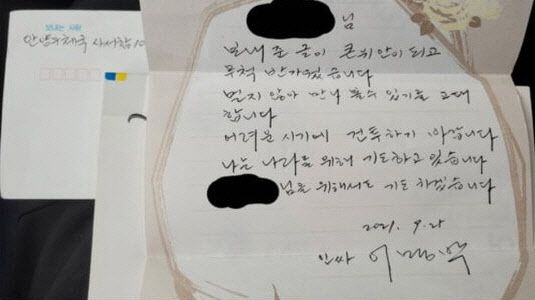 보내는 사람
안양우체국 사서함 10
님
보내 준 글이 큰 위안이 되고
무척 반가웠습니다
멀지 않아 만나 볼 수 있기를 고대
합니다
어려운 시기에 건투하기 바랍니다
나는 나라를 위해 기도하고 있습니다
님을 위해서도 기도 하겠습니다
2021. 9.
안양 이명박